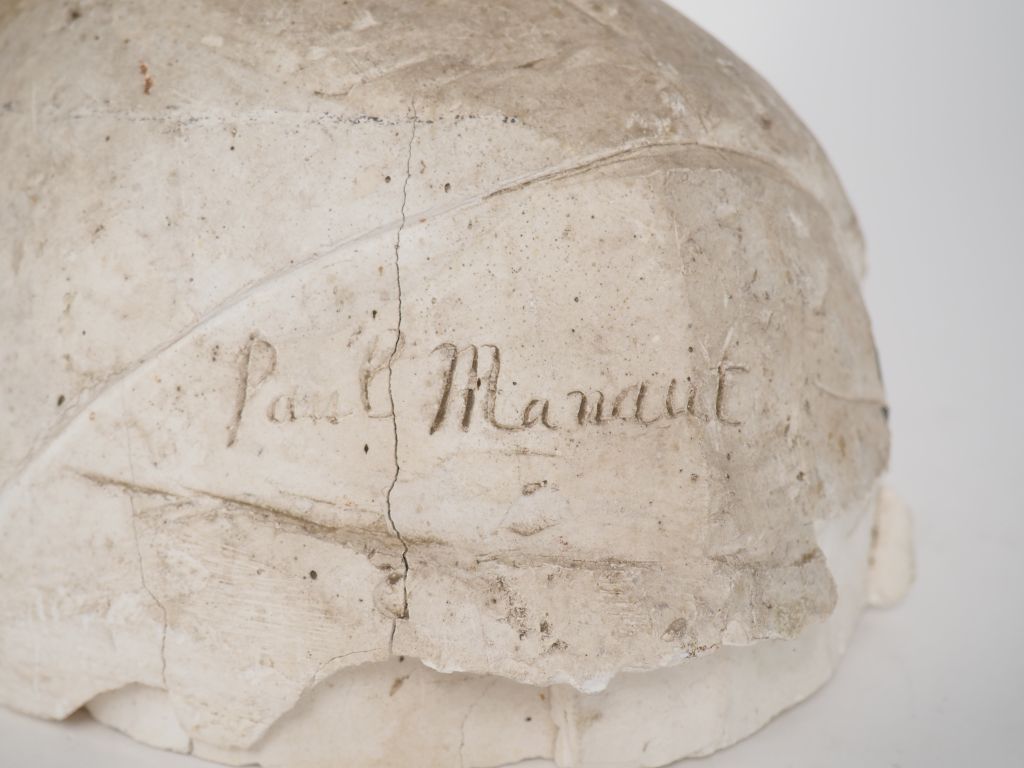 Paul Manaut